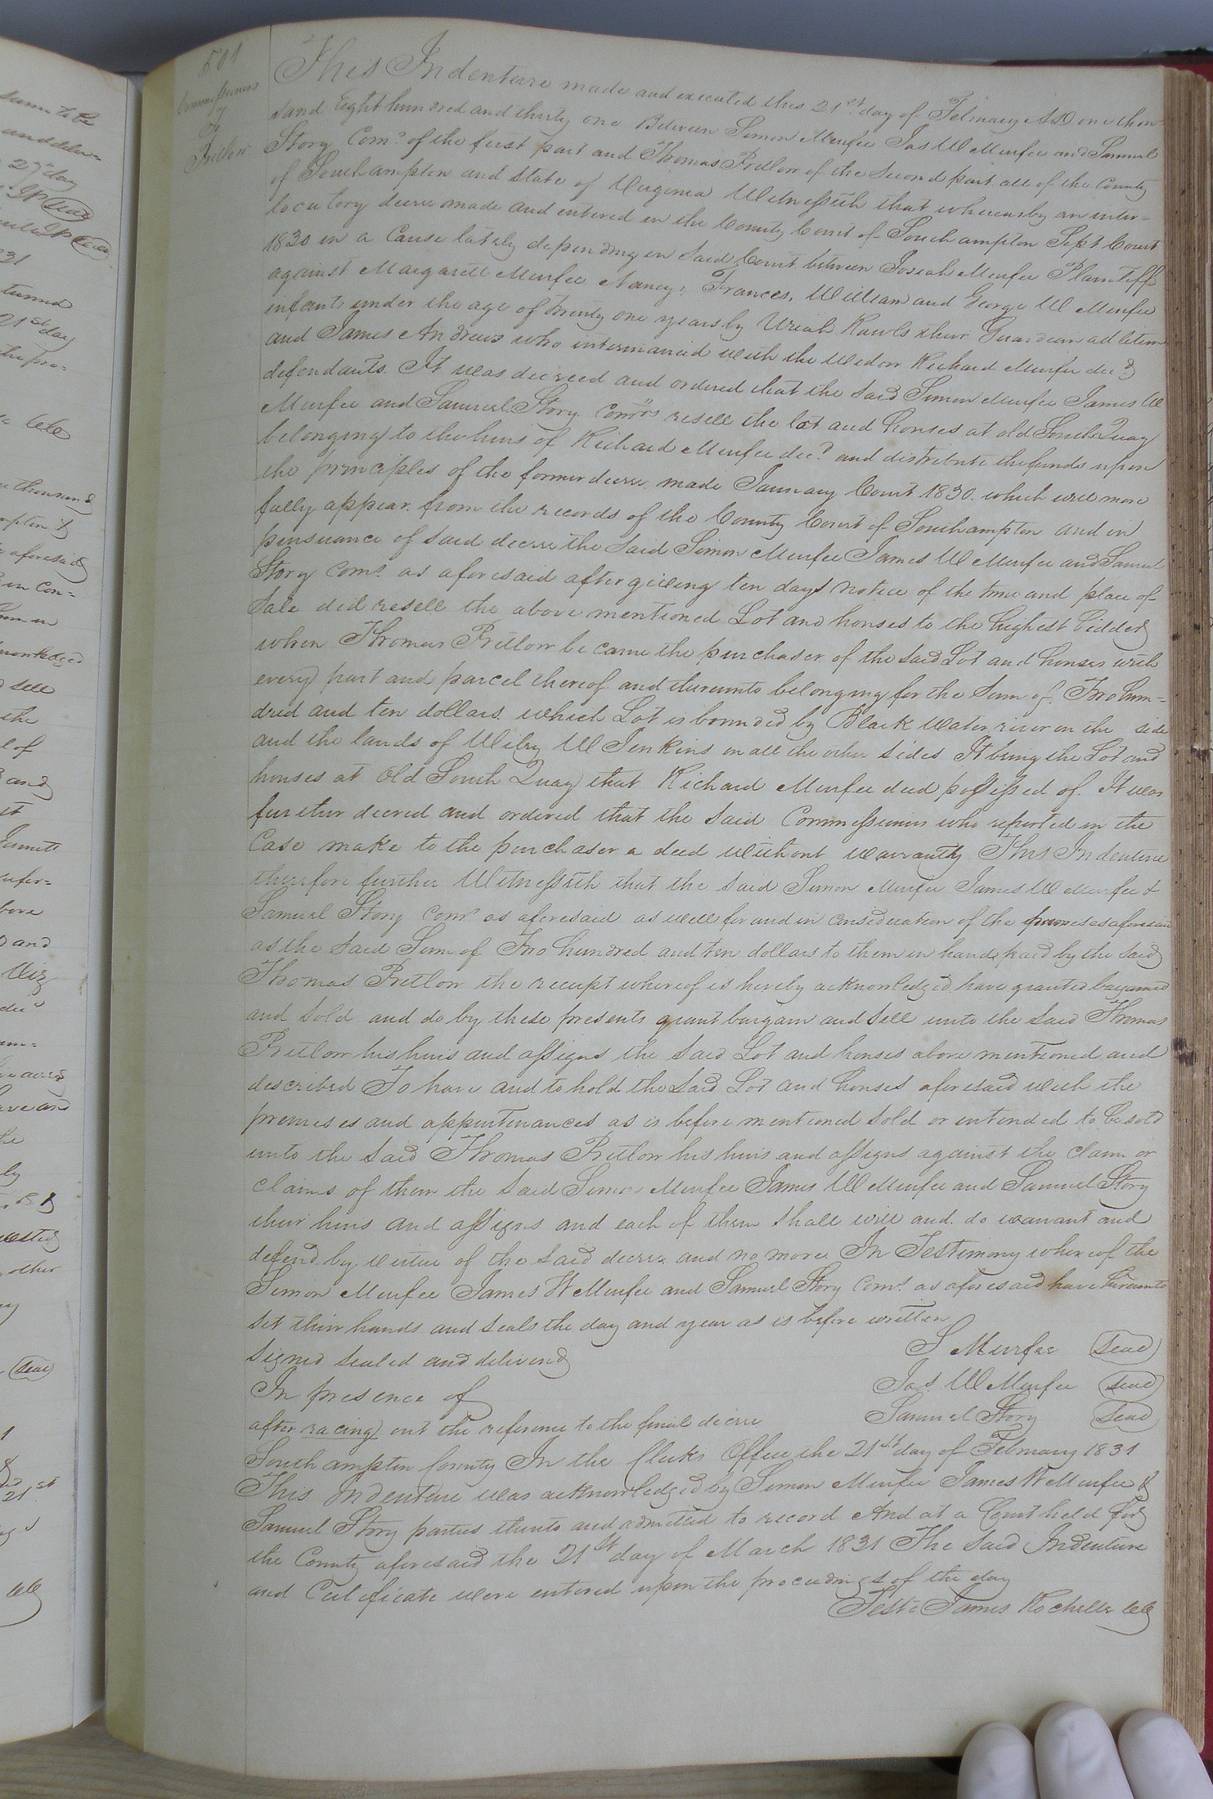 501
Commissioners
To
Pretlow
This Indenture made and executed this 21st day of February AD one thou-
sand Eight hundred and thirty one Between Simon Murfee Jas W Murfee and Samuel
Story Comrs of the first part and Thomas Pretlow of the Second part all of the County
of Southampton and State of Virginia Witnesseth that whereas by an inter-
locutory decree made and entered in the County Court of Southampton Sept Court
1830 in a Cause lately depending in said Court between Josiah Murfee Plaintiff
against Margarett Murfee Nancy, Frances, William and George W Murfee
infants under the age of twenty one years by Uriah Rawls their Guardian ad litem
and James Andrews who intermarried with the Widow Richard Murfee decd
defendants. It was decreed and ordered that the said Simon Murfee James W
Murfee and Samuel Story Comrs resell the lot and houses at old South Quay
belonging to the heirs of Richard Murfee decd and distribute the funds upon
the principles of the former decree made January Court 1830. which will more
fully appear from the records of the County Court of Southampton and in
pursuance of said decree the said Simon Murfee James W Murfee and Samuel
Story Comrs as aforesaid after giving ten days notice of the time and place of
Sale did resell the above mentioned Lot and houses to the highest bidder
when Thomas Pretlow became the purchaser of the said Lot and houses with
every part and parcel thereof and thereunto belonging for the Sum of Two hun-
dred and ten dollars. which Lot is bounded by Black Water river on the side
and the lands of Wiley W Jenkins on all the other sides It being the Lot and
houses at Old South Quay that Richard Murfee died possessed of. It was
further decreed and ordered that the said Commissioners who reported in the
Case make to the purchaser a deed without warranty This Indenture
therefore further Witnesseth that the said Simon Murfee James W Murfee &
Samuel Story Comrs as aforesaid as well for and in consideration of the premises aforesaid
as the said Sum of Two hundred and ten dollars to them in hand paid by the said
Thomas Pretlow the receipt whereof is hereby acknowledged have granted bargained
and sold and do by these presents grant bargain and sell unto the said Thomas
Pretlow his heirs and assigns the said Lot and houses above mentioned and
described To have and to hold the said Lot and houses aforesaid with the
premises and appurtenances as is before mentioned sold or intended to be sold
unto the said Thomas Pretlow his heirs and assigns against the claim or
claims of them the said Simon Murfee James W Murfee and Samuel Story
their heirs and assigns and each of them shall will and do warrant and
defend by virtue of the said decree and no more In Testimony whereof the
Simon Murfee James W Murfee and Samuel Story Comrs as aforesaid have hereunto
set their hands and seals the day and year as is before written
Signed sealed and delivered S Murfee Seal
In presence of Jas W Murfee Seal
after racing out the reference to the final decree Samuel Story Seal
Southampton County In the Clerks Office the 21st day of February 1831
This Indenture was acknowledged by Simon Murfee James W Murfee &
Samuel Story parties thereto and admitted to record And at a Court held for
the County aforesaid the 21st day of March 1831 The said Indenture
and Certificate were entered upon the proceedings of the day
Teste James Rochelle CC